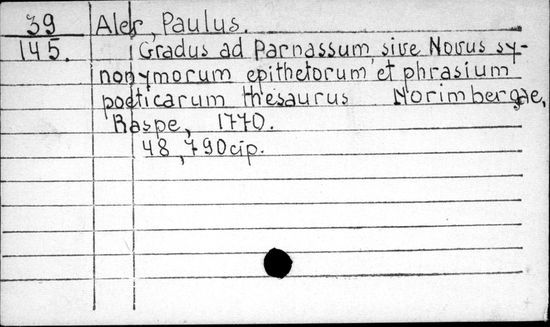 39 Aler, Paulus.
145. Gradus ad Parnassum sive Novus sy-
nonymorum epithetorum et phrasium
poeticarum thesaurus Norimbergae,
Raspe, 1770.
48, 790 cip.